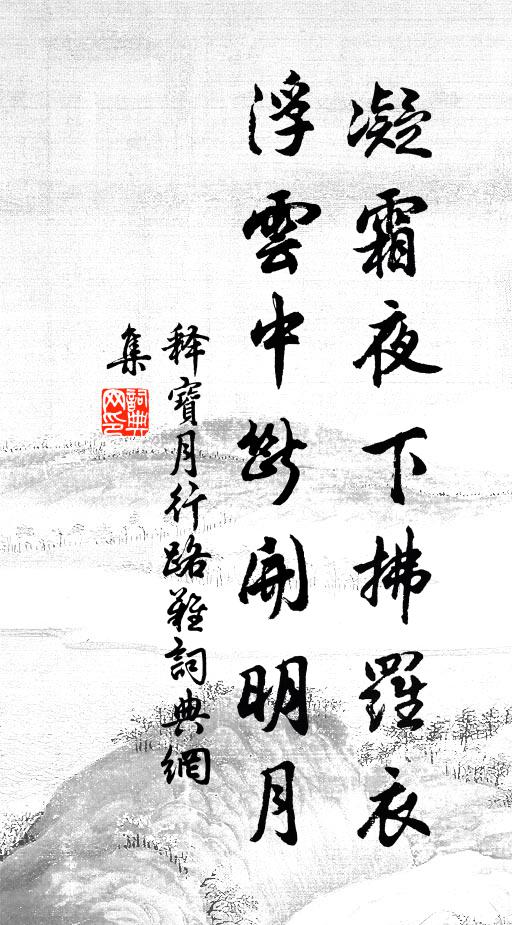 凝霜夜下拂羅衣
浮雲中斷開明月
释寶月行路難詞典網
集
詞典網印